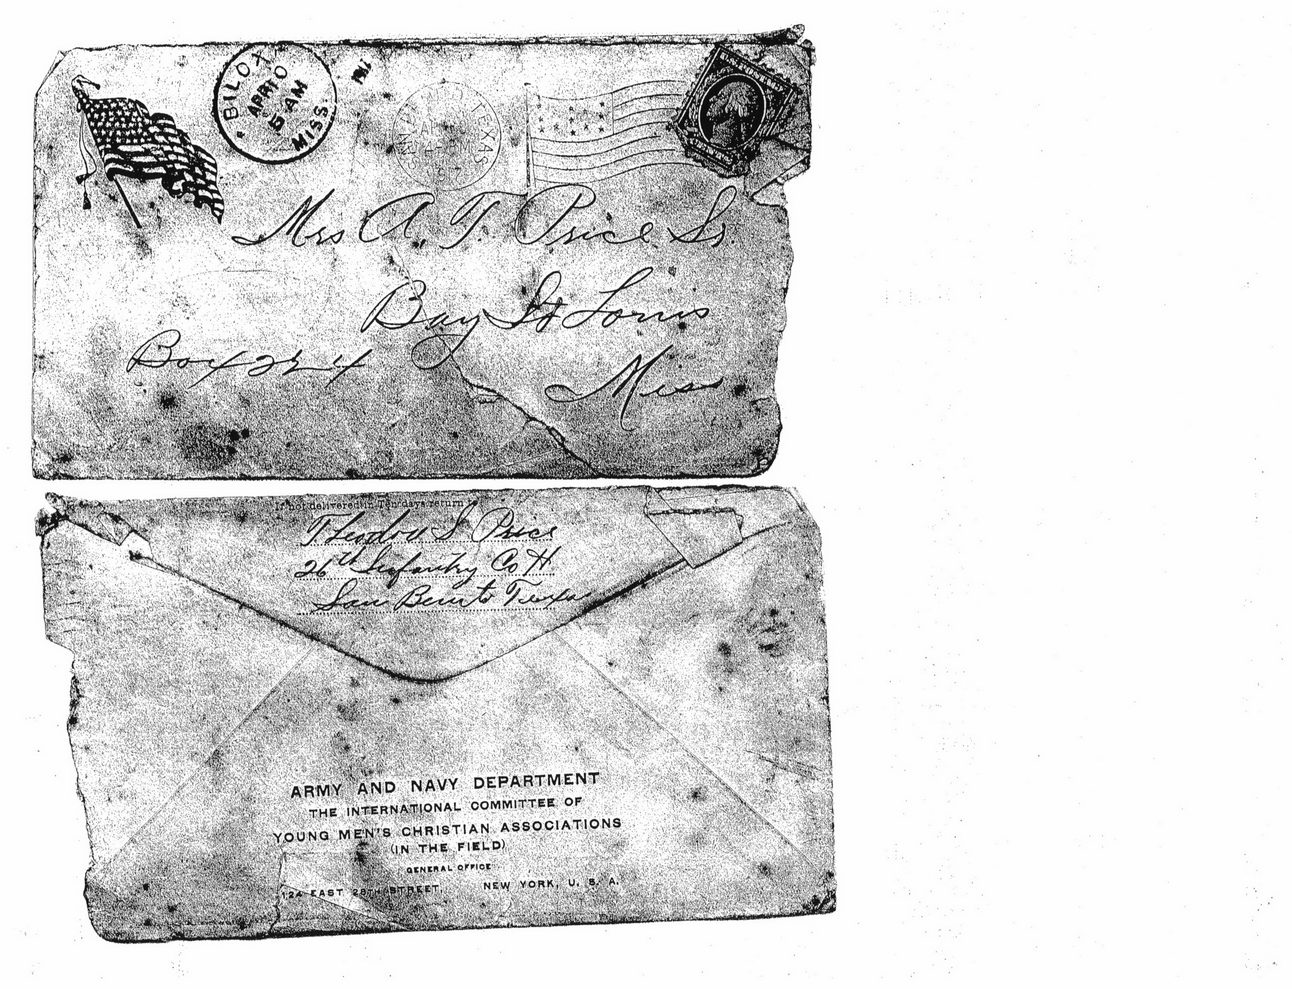 BILOXI
APR 10
5 AM
MISS.
TEXAS
Mrs A. T. Price Sr.
Bay St Louis
Box
Miss
If not delivered in Ten days return to
Theodore S Price
26th Infantry Co H
San Benito Texas
ARMY AND NAVY DEPARTMENT
THE INTERNATIONAL COMMITTEE OF
YOUNG MEN'S CHRISTIAN ASSOCIATIONS
(IN THE FIELD)
GENERAL OFFICE
124 EAST 28TH STREET, NEW YORK, U. S. A.